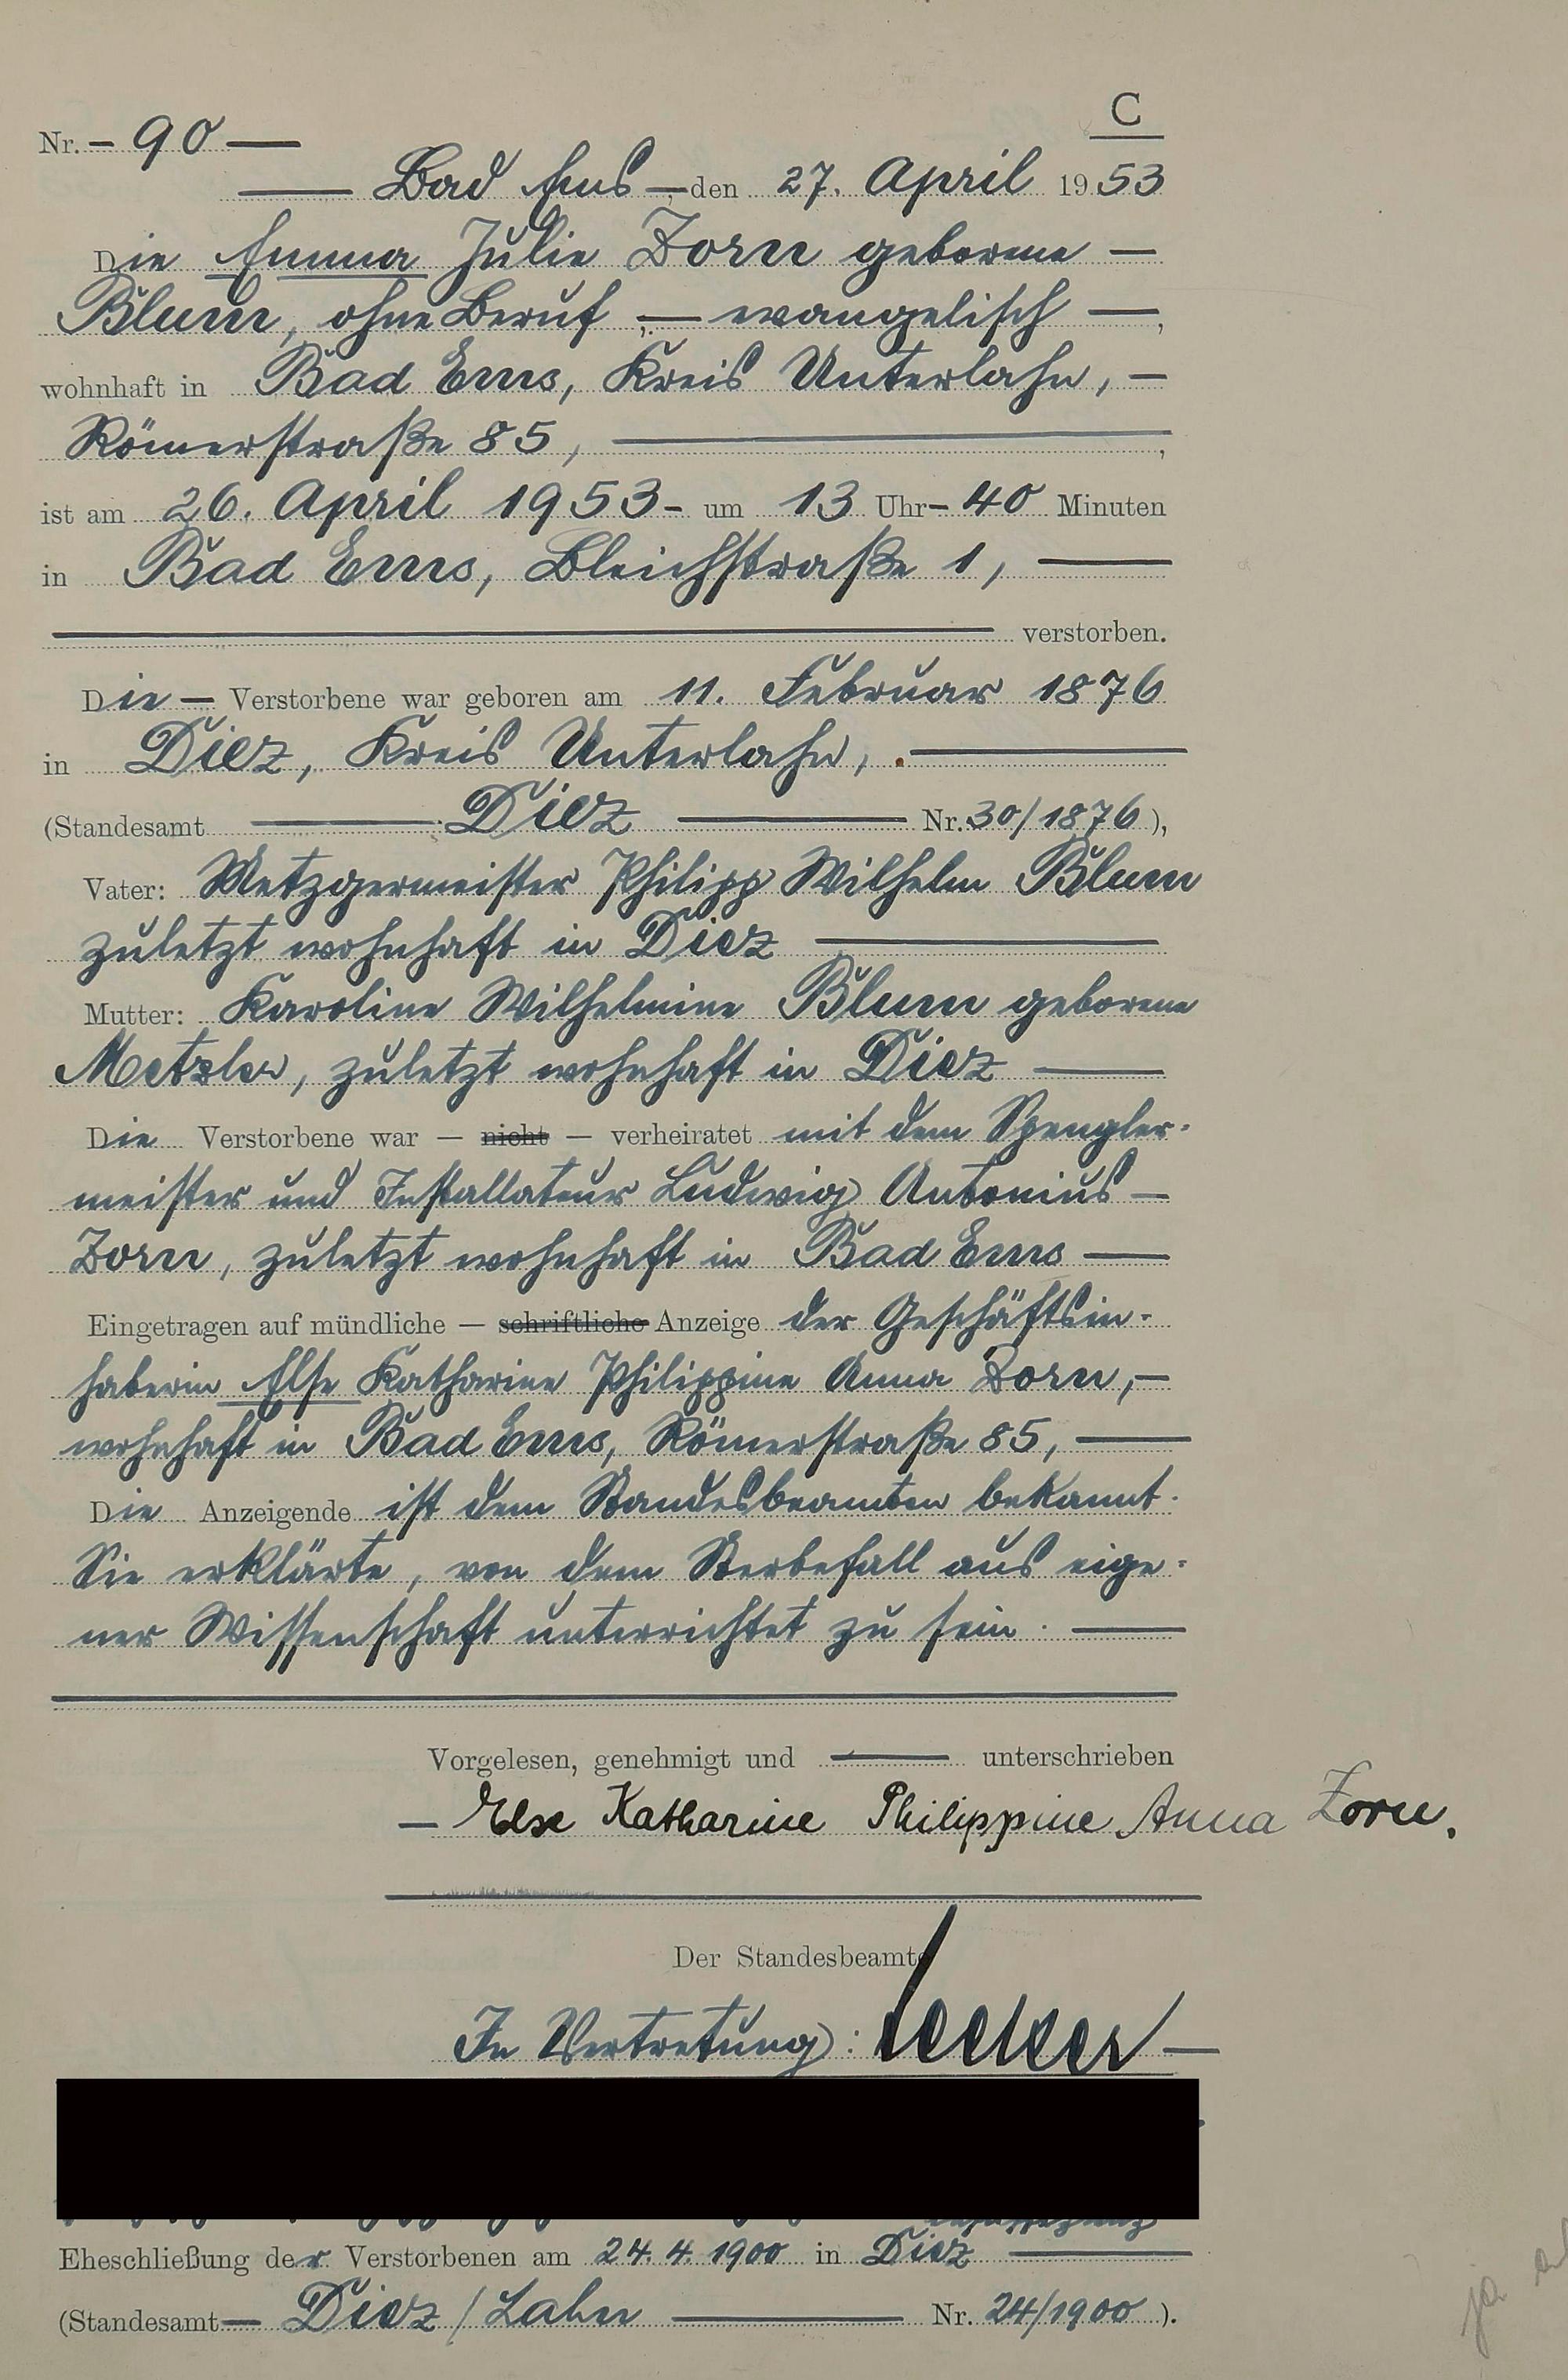 C
Nr. – 90 —
— Bad Ems —, den 27. April 1953
Die Emma Julie Zorn geborene —
Blum, ohne Beruf, — evangelisch —,
wohnhaft in Bad Ems, Kreis Unterlahn, —
Römerstraße 85, —,
ist am 26. April 1953 - um 13 Uhr – 40 Minuten
in Bad Ems, Bleichstraße 1, —
— verstorben.
Die — Verstorbene war geboren am 11. Februar 1876
in Diez, Kreis Unterlahn, —
(Standesamt — Diez — Nr. 30/1876),
Vater: Metzgermeister Philipp Wilhelm Blum
zuletzt wohnhaft in Diez —
Mutter: Karoline Wilhelmine Blum geborene
Metzler, zuletzt wohnhaft in Diez —
Die Verstorbene war — nicht — verheiratet mit dem Spengler-
meister und Installateur Ludwig Antonius —
Zorn, zuletzt wohnhaft in Bad Ems —
Eingetragen auf mündliche — schriftliche Anzeige der Geschäftsin-
haberin Else Katharine Philippine Anna Zorn, —
wohnhaft in Bad Ems, Römerstraße 85, —
Die Anzeigende ist dem Standesbeamten bekannt.
Sie erklärte, von dem Sterbefall aus eige-
ner Wissenschaft unterrichtet zu sein. —
Vorgelesen, genehmigt und — unterschrieben
— Else Katharine Philippine Anna Zorn.
Der Standesbeamte
In Vertretung:
Eheschließung der Verstorbenen am 24.4.1900 in Diez —
(Standesamt — Diez / Lahn — Nr. 24/1900).
ja